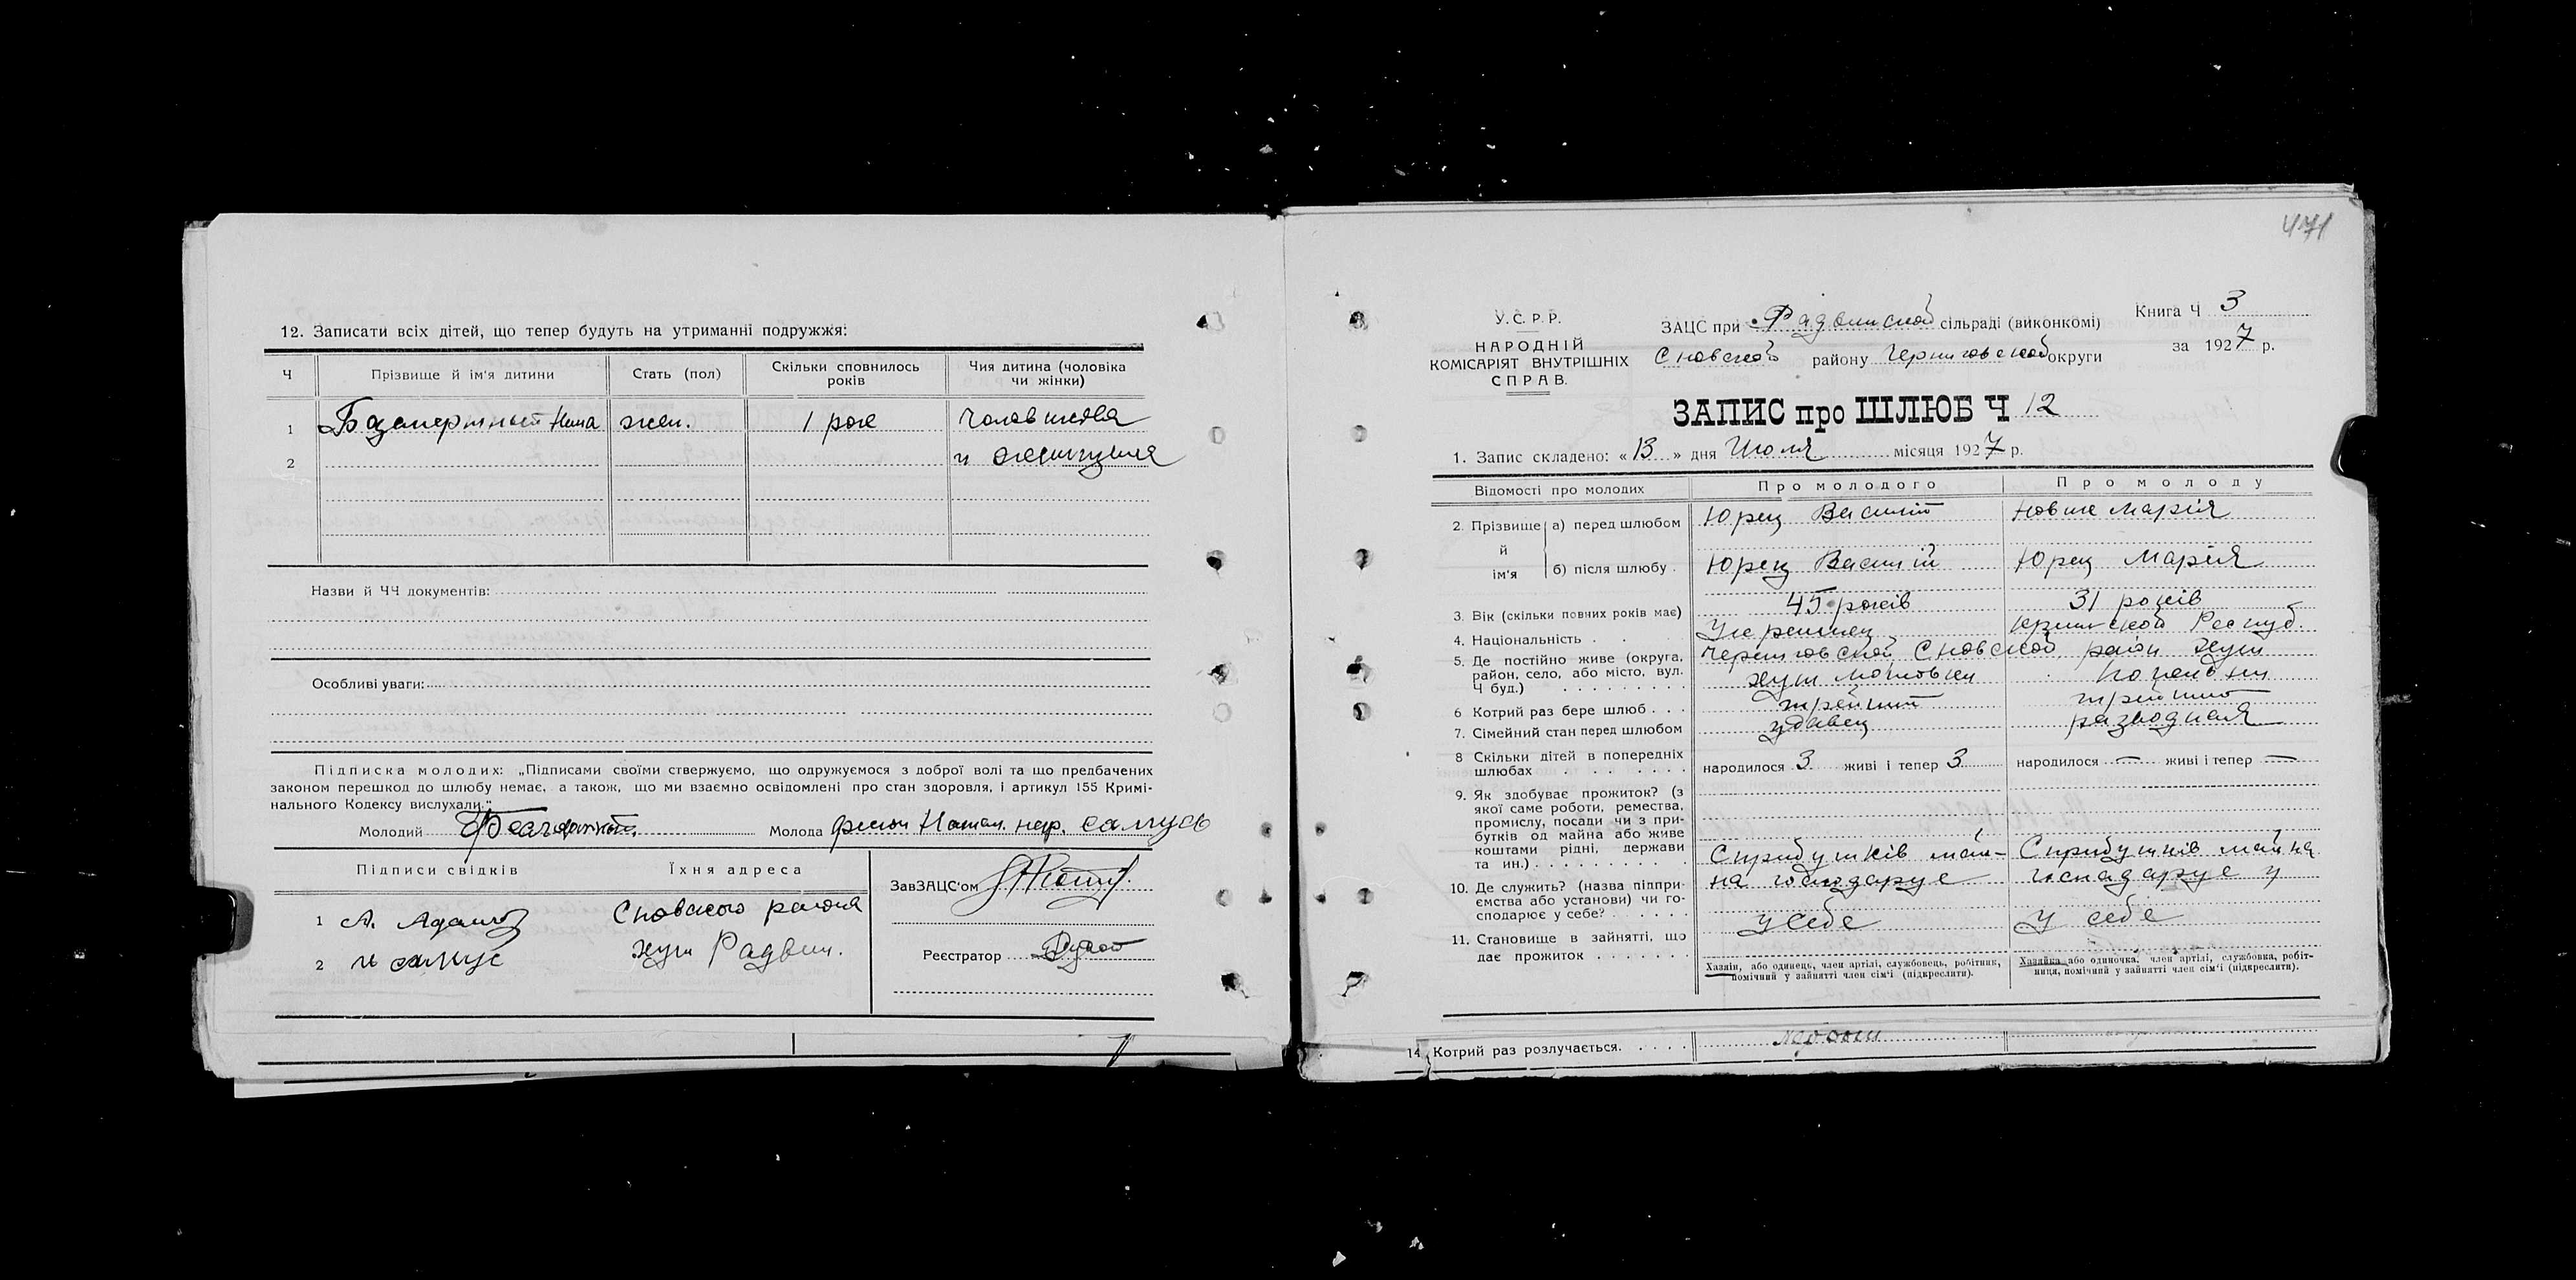 12. Записати всіх дітей, що тепер будуть на утриманні подружжя:
Ч Прізвище й ім'я дитини Стать (пол) Скільки сповнилось років Чия дитина (чоловіка чи жінки)
1 Нина жен. 1 рок
2 и
Назви й ЧЧ документів:
Особливі уваги:
Підписка молодих: „Підписами своїми стверджуємо, що одружуємося з доброї волі та що предбачених
законом перешкод до шлюбу немає, а також, що ми взаємно освідомлені про стан здоровля, і артикул 155 Кримі-
нального Кодексу вислухали."
Молодий Молода самусь
Підписи свідків Їхня адреса
ЗавЗАЦС'ом
1 А. Сновського района
2 хут Радвин.
Реєстратор
471
У.С.Р.Р.
НАРОДНІЙ
КОМІСАРІЯТ ВНУТРІШНІХ
СПРАВ.
ЗАЦС при сільраді (виконкомі)
Сновской району Черниговской округи
Книга Ч 3
за 1927 р.
ЗАПИС про ШЛЮБ Ч 12
1. Запис складено: « 13 » дня Июля місяця 1927 р.
Відомості про молодих Про молодого Про молоду
2. Прізвище й ім'я а) перед шлюбом Юрец Василій Марія
б) після шлюбу Юрец Василій Юрец Марія
3. Вік (скільки повних років має) 45 років 31 років
4. Національність Украинец Респуб.
5. Де постійно живе (округа,
район, село, або місто, вул.
Ч буд.)
Черниговской Сновской район Хут
хут
6 Котрий раз бере шлюб третий
7. Сімейний стан перед шлюбом удавец разводная
8 Скільки дітей в попередніх
шлюбах
народилося 3 живі і тепер 3 народилося — живі і тепер —
9. Як здобуває прожиток? (з
якої саме роботи, ремества,
промислу, посади чи з при-
бутків од майна або живе
коштами рідні, держави
та ин.)
Сприбутків май-
на господарує
Сприбутків майна
господарує у
10. Де служить? (назва підпри-
ємства або установи) чи го-
сподарює у себе?
у себе у себе
11. Становище в зайнятті, що
дає прожиток
Хазяїн, або одинець, член артілі, службовець, робітник,
помічний у зайнятті член сім'ї (підкреслити).
Хазяйка або одиночка, член артілі, службовка, робіт-
ниця, помічний у зайнятті член сім'ї (підкреслити).
14. Котрий раз розлучається.